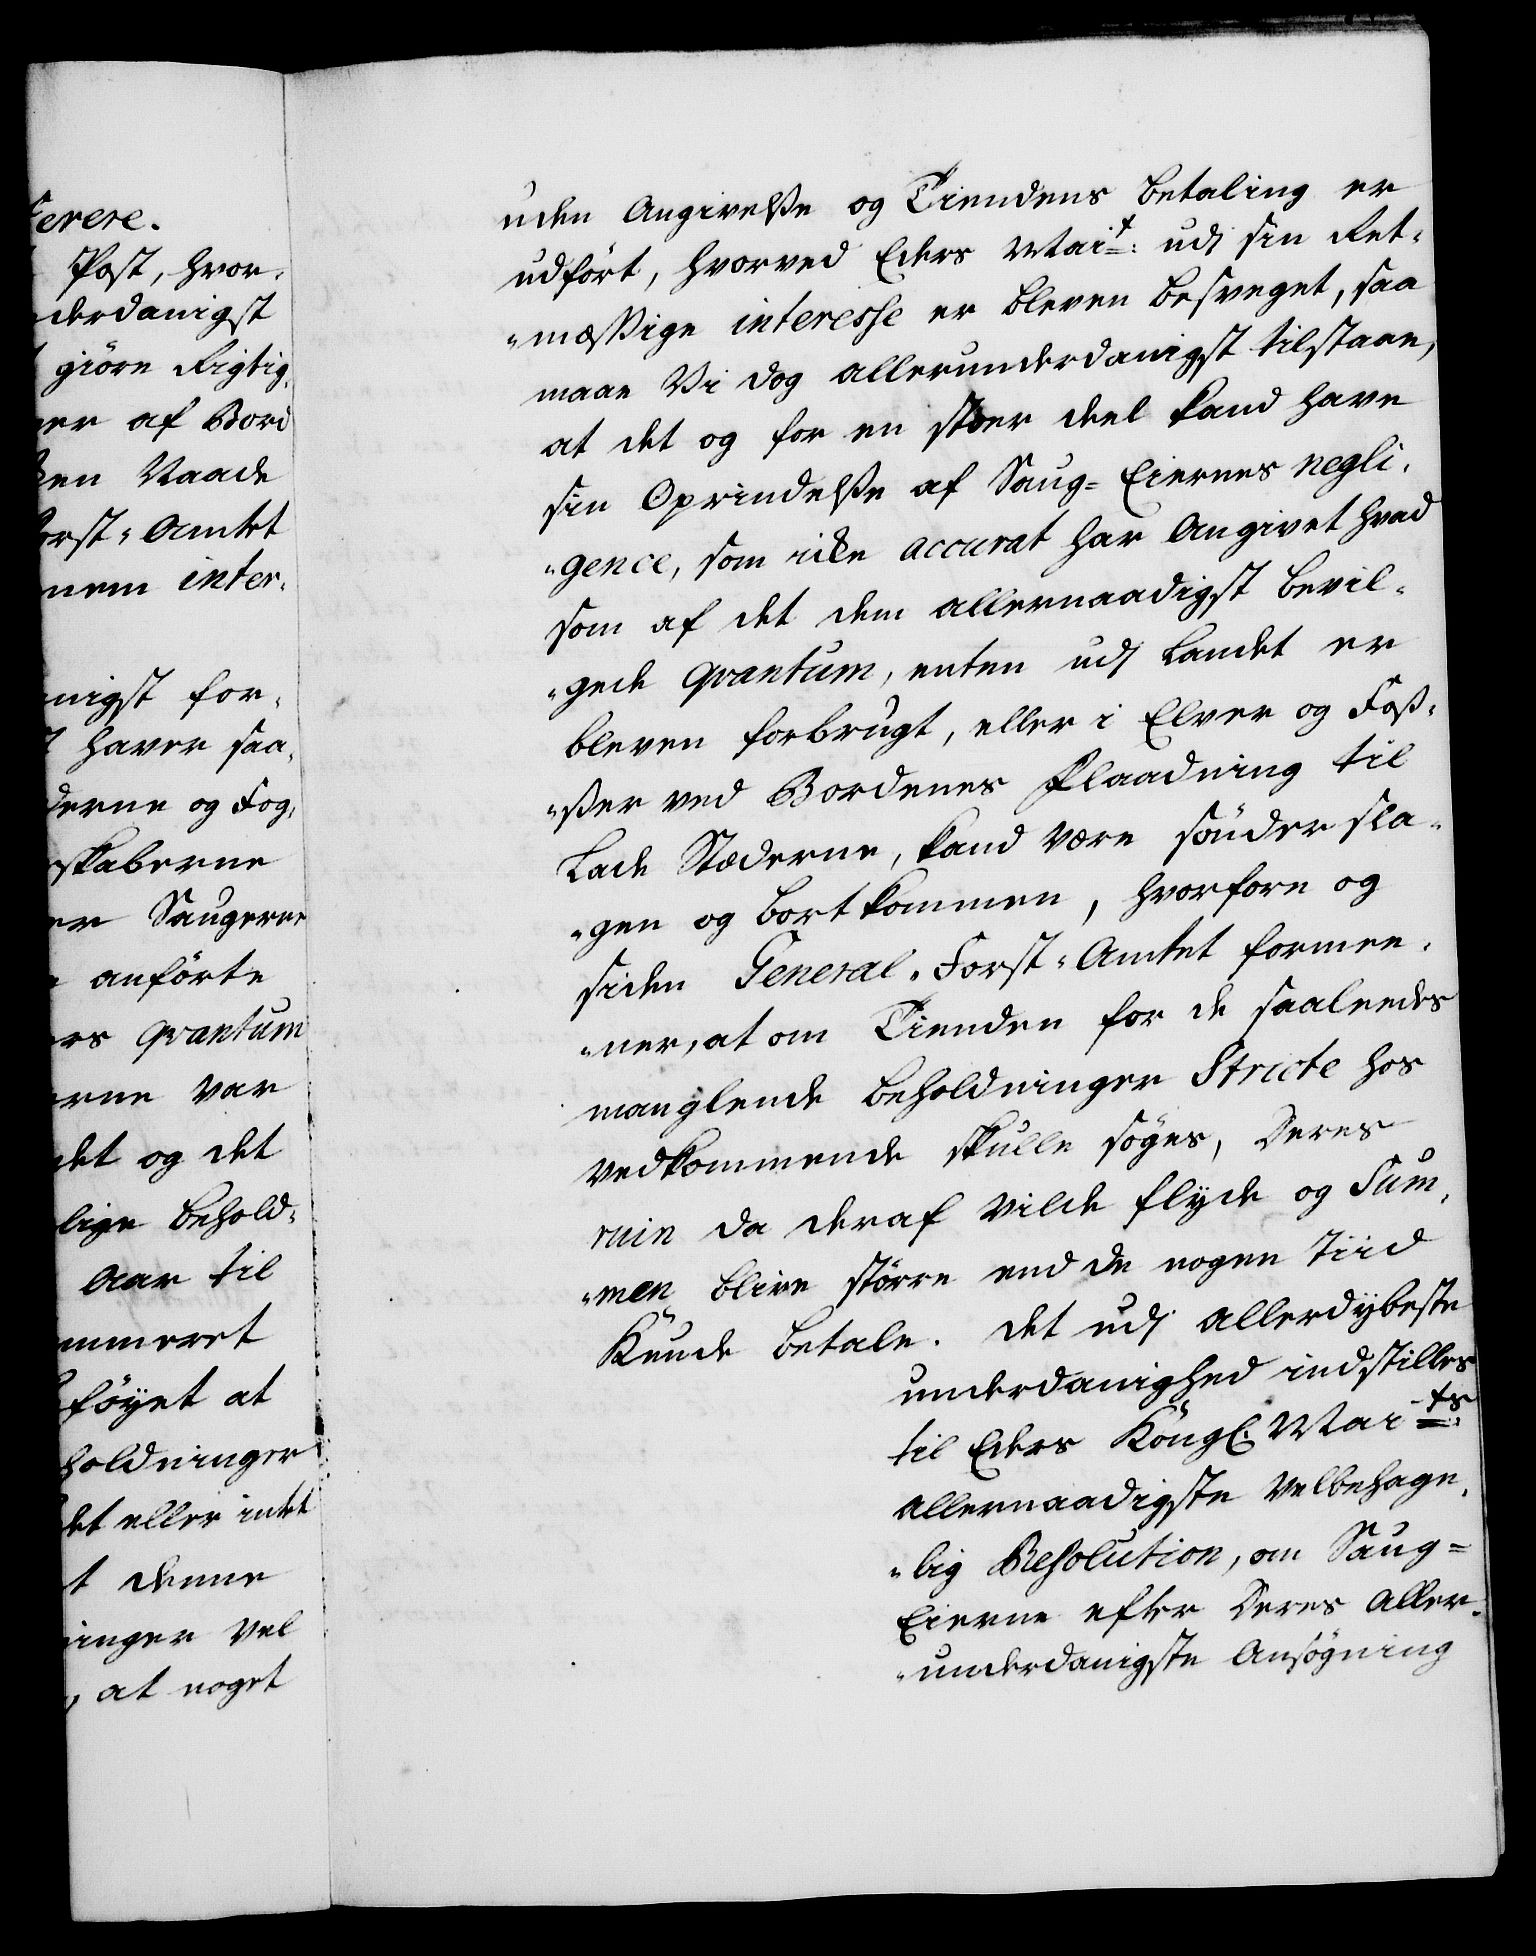 ferere.
Post, hvor„
derdanigst
giöre Rigtig„
er af Bord
en Vaade
orst„Amtet
nem inter„
nigst for„
haver saa„
derne og Fog„
skaberne
er Saugerne
anförte
rs qvantum
erne var
det og det
lige Behold„
Aar til
mmeret
föyet at
holdninger
det eller intet
t denne
inger vel
, at noget
uden Angivelße og Tiendens Betaling er
udfört, hvorved Eders Mai.t: udj sin Ret„
„mæßige interesse er bleven besveget, saa
maae Vi dog allerunderdanigst tilstaae,
at det og for en stoer deel kand have
sin Oprindelße af Saug= Eiernes negli„
„gence, som icke accurat har Angivet hvad
som af det dem allernaadigst bevil„
„gede qvantum, enten udj Landet er
bleven forbrugt, eller i Elver og Foß„
„ßer ved Bordenes Flaadning til
Lade Stæderne, kand være sönder sla„
„gen og bortkommen, hvorfore og
siden General„Forst„Amtet formee„
„ner, at om Tienden for de saaleedes
manglende Beholdninger Stricte hos
vedkommende skulle söges, Deres
ruin da deraf vilde flyde og Sum„
„men blive större end de nogen Tiid
Kunde betale. Det udj allerdybeste
underdanighed indstilles
til Eders Kongl: Mai.ts:
allernaadigste Velbehage„
„lig Resolution, om Saug=
Eierne efter Deres Aller„
„underdanigste Ansögning